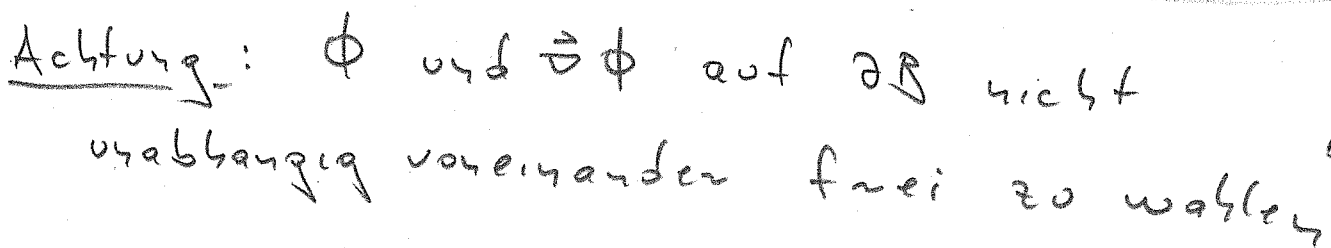 Achtung: ϕ und ∇⃗ϕ auf ∂B nicht
unabhängig voneinander frei zu wählen